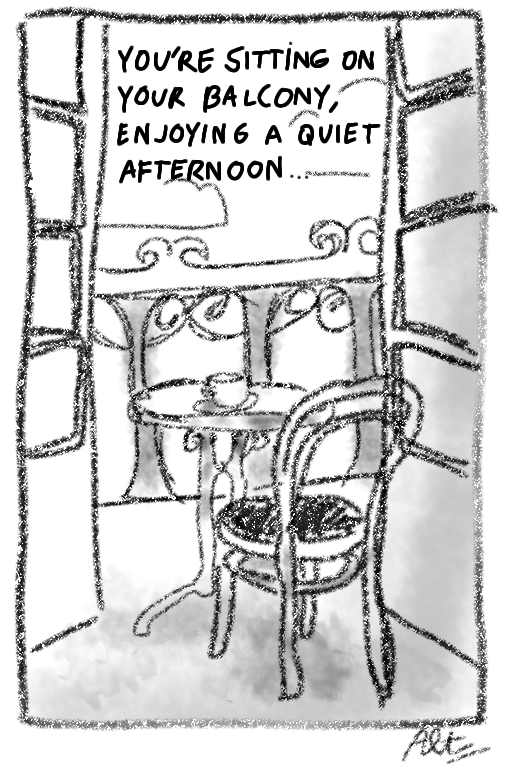 YOU'RE SITTING ON
YOUR BALCONY,
ENJOYING A QUIET
AFTERNOON...